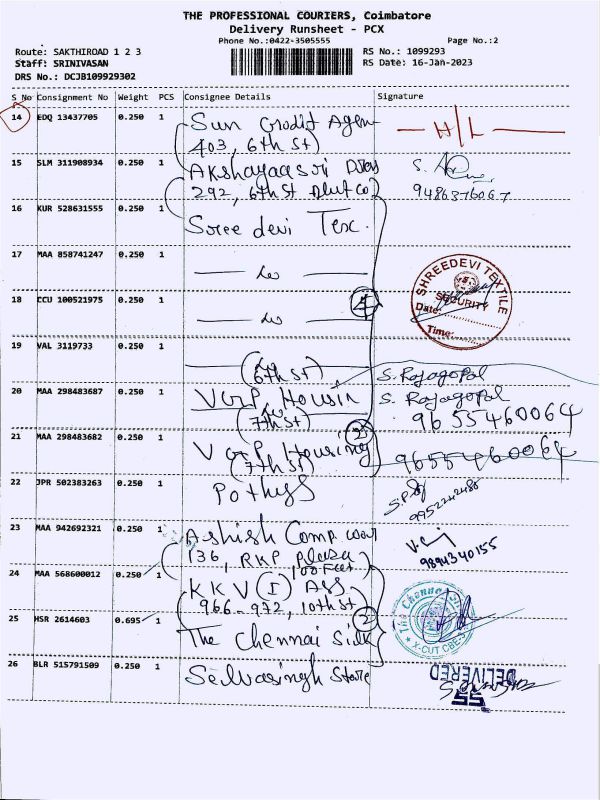 THE PROFESSIONAL COURIERS, Coimbatore
Delivery Runsheet - PCX
Phone No.:0422-3505555
Page No.:2
Route: SAKTHIROAD 1 2 3
RS No.: 1099293
Staff: SRINIVASAN
RS Date: 16-Jan-2023
DRS No.: DCJB109929302
S No Consignment No Weight PCS Consignee Details Signature
14 EDQ 13437705 0.250 1 Sun Credit Agen H/L
403, 6th St)
15 SLM 311908934 0.250 1 Akshayaasri S.
292, 6th St 9486376067
16 KUR 528631555 0.250 1 Sree devi Tex.
17 MAA 858741247 0.250 1
SHREEDEVI TEXTILE
SECURITY
Date:
Time:
18 CCU 100521975 0.250 1 4
19 VAL 3119733 0.250 1
(6th St) S. Rajagopal
20 MAA 298483687 0.250 1 VGP Housin S. Rajagopal
(7th St) 9655460064
21 MAA 298483682 0.250 1 VGP Housing 9655460064
(7th St)
22 JPR 502383263 0.250 1 Pothys
23 MAA 942692321 0.250 1 Ashish Comp
136, RKP Plaza 9894340155
100 Feet
24 MAA 568600012 0.250 1 KKV (I) Ass
966-972, 10th St
25 HSR 2614603 0.695 1 The Chennai Silk 2
The Chennai
X-CUT CBE-
26 BLR 515791509 0.250 1 Selvasingh Store
DELIVERED